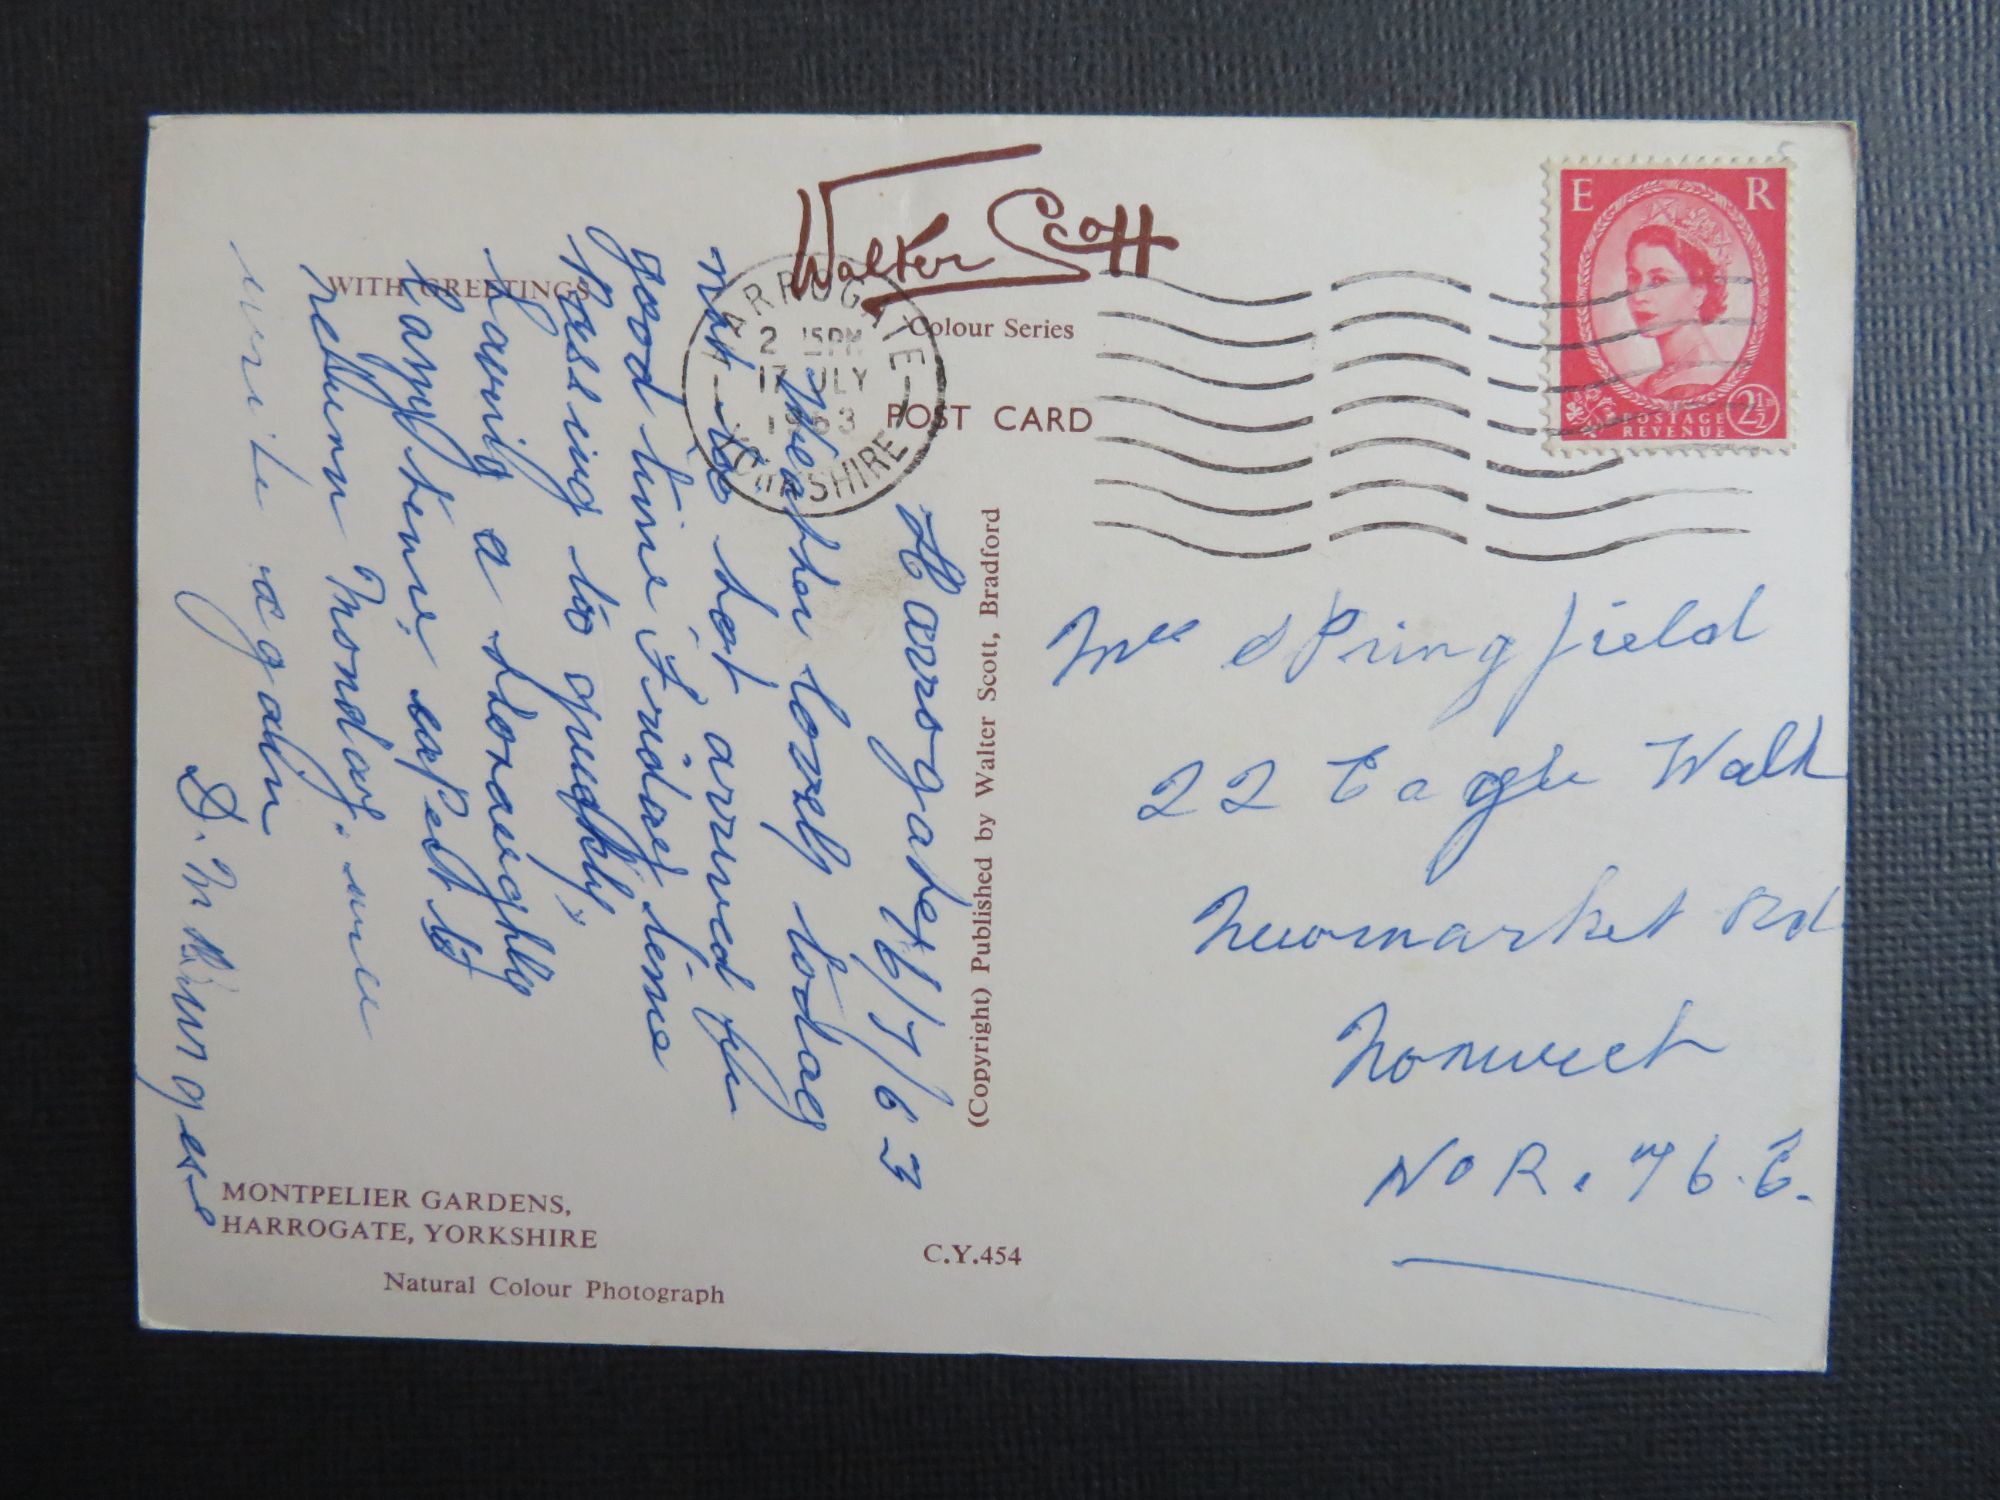 WITH GREETINGS
Walter Scott
Colour Series
POST CARD
HARROGATE
2 15PM
17 JULY
1963
YORKSHIRE
E R
POSTAGE
REVENUE
2½
Harrogate 16/7/63
Weather lovely today
not too hot arrived in
good time Friday time
Passing to quickly,
having a thoraughly
happy time, expect to
return Monday. will
write again
D. M Burgess
(Copyright) Published by Walter Scott, Bradford
Mrs Springfield
22 Eagle Walk
Newmarket Rd
Norwich
NOR. 76.E.
MONTPELIER GARDENS,
HARROGATE, YORKSHIRE
Natural Colour Photograph
C.Y.454